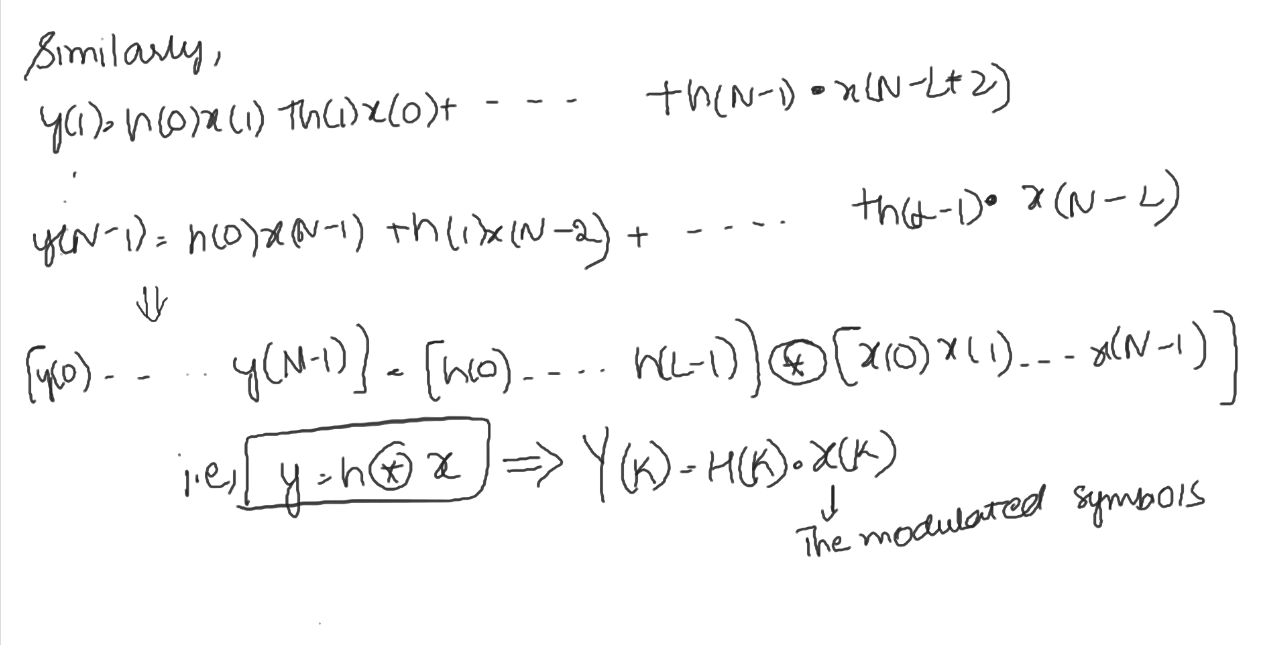 Similarly,
y(1) = h(0)x(1) + h(1)x(0) + - - - + h(N-1) • x(N-L+2)
y(N-1) = h(0)x(N-1) + h(1)x(N-2) + - - - - + h(L-1) • x(N-L)
⇓
[y(0) - - - - y(N-1)] = [h(0) - - - - h(L-1)] ⊛ [x(0) x(1) - - - x(N-1)]
i.e, y = h ⊛ x ⇒ Y(K) = H(K) • X(K)
↓
The modulated symbols